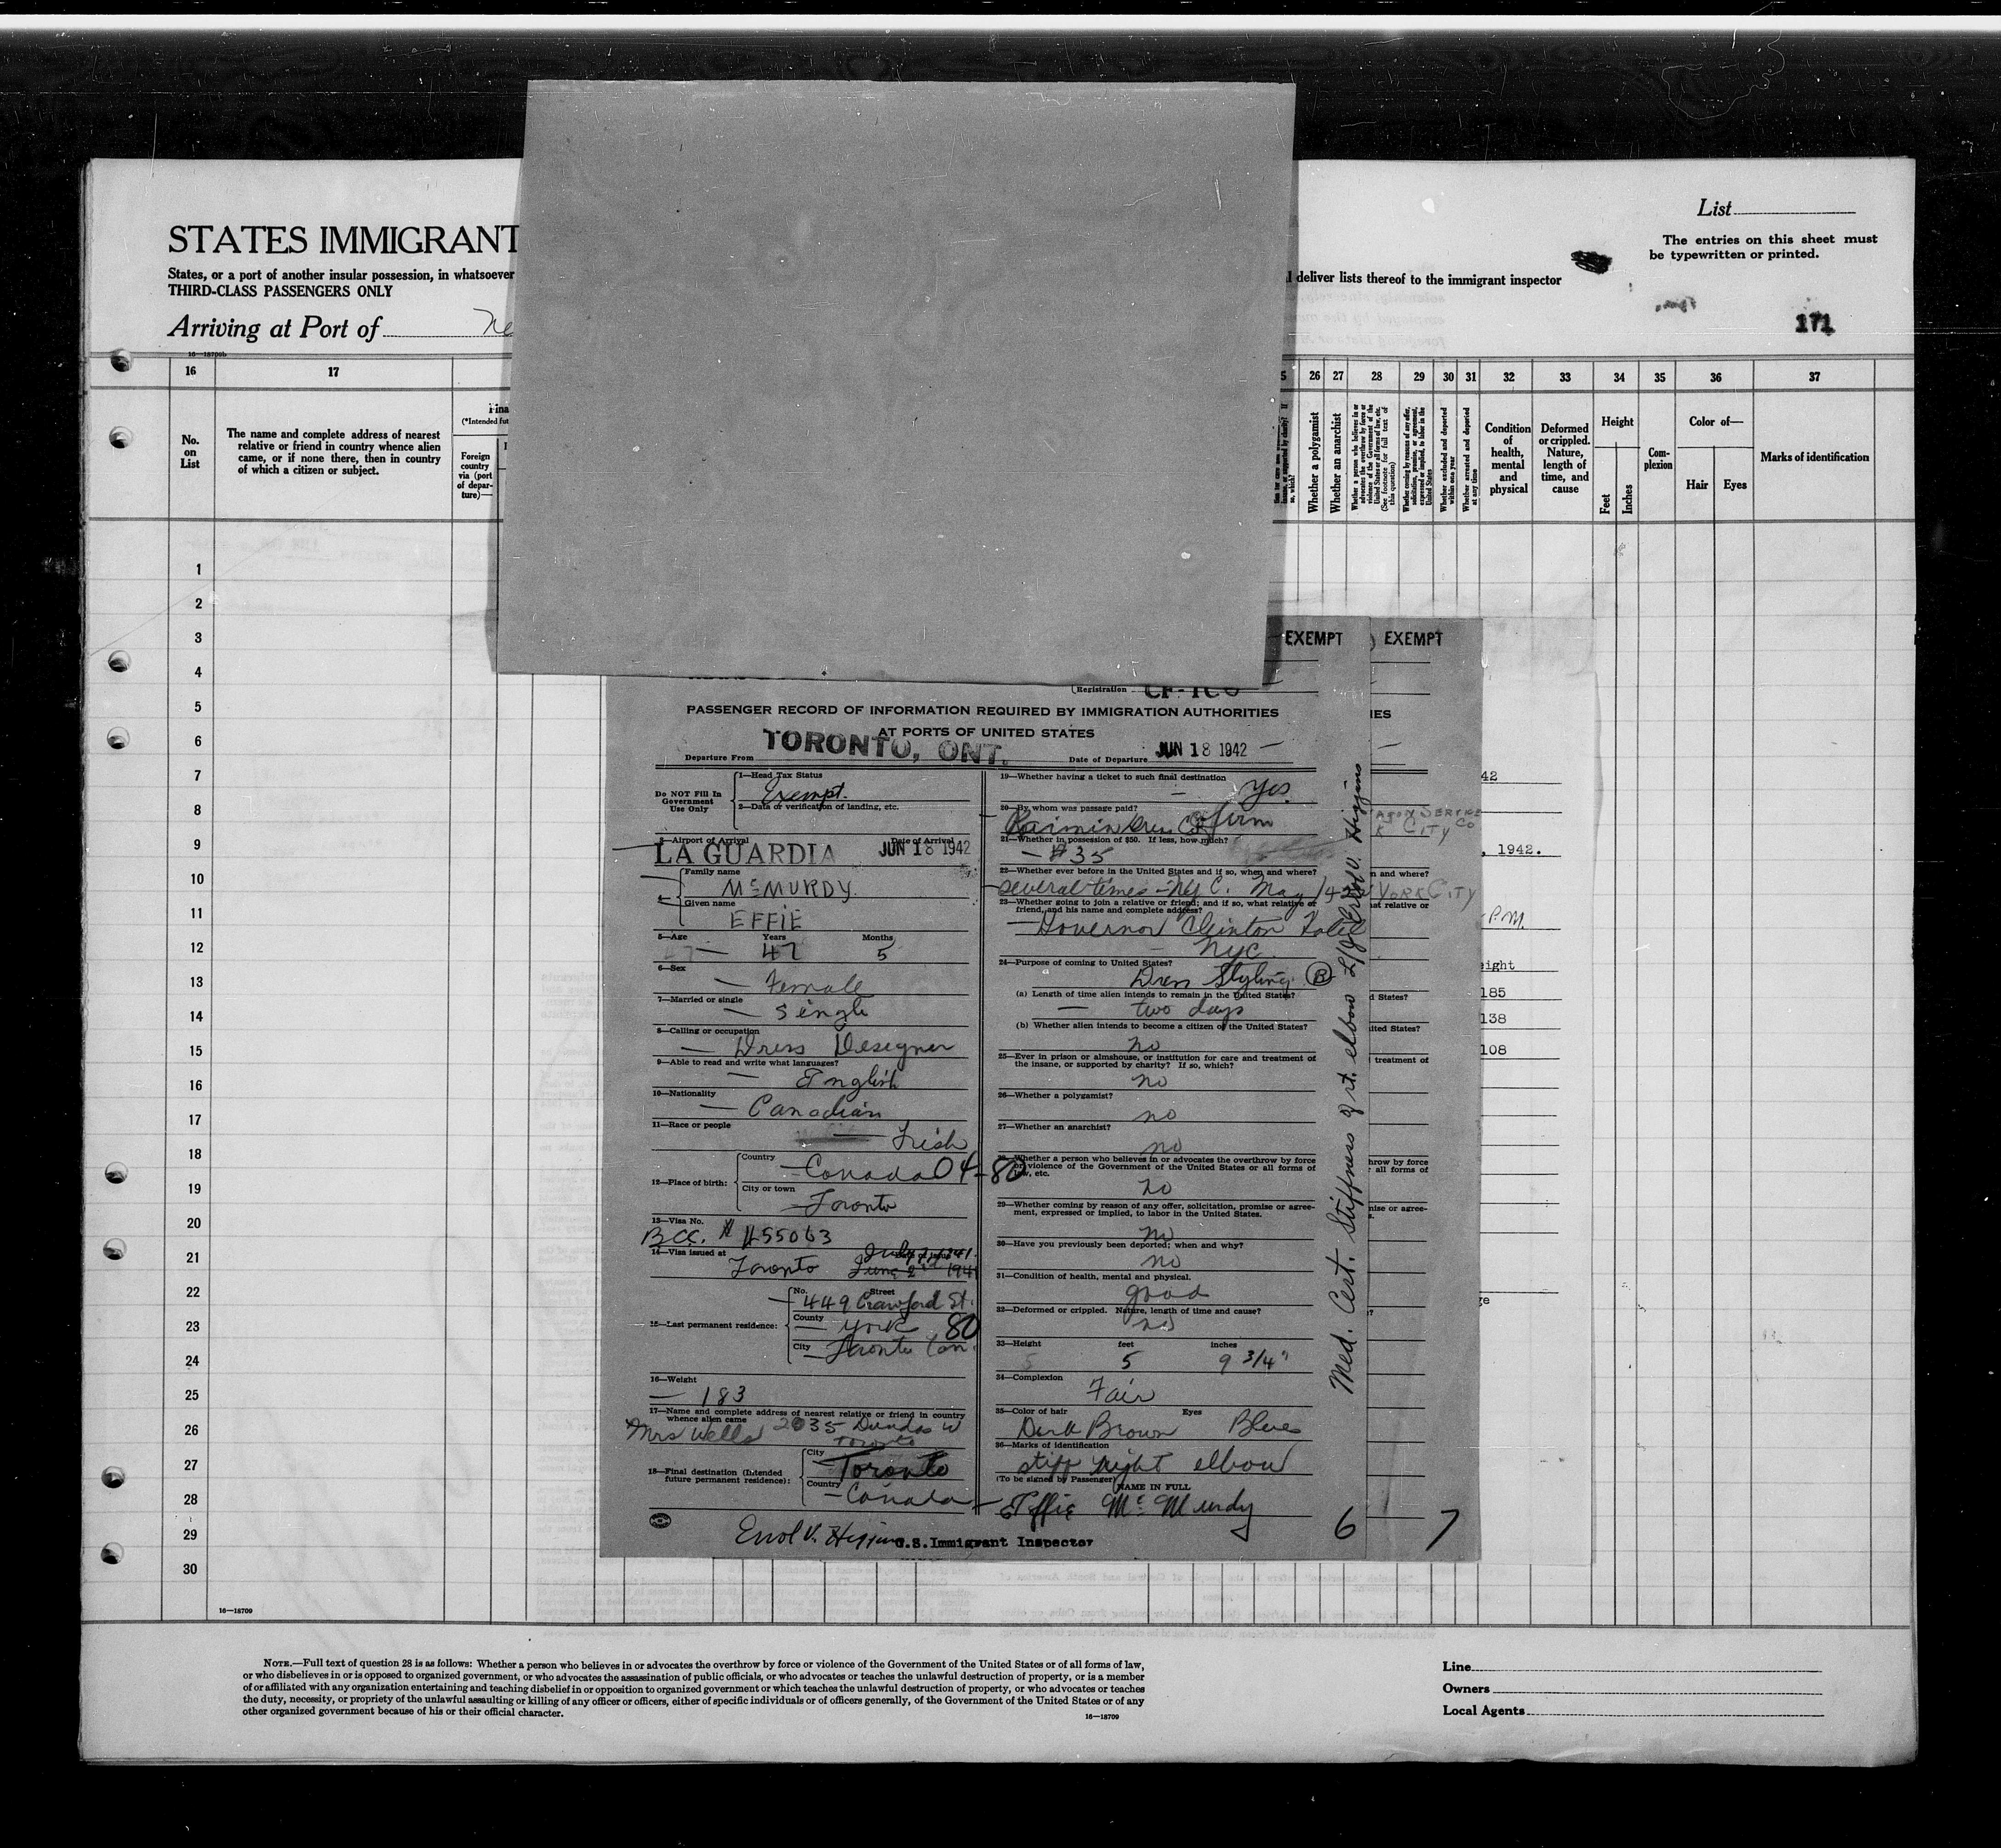 List
The entries on this sheet must
be typewritten or printed.
STATES IMMIGRANT
States, or a port of another insular possession, in whatsoever
deliver lists thereof to the immigrant inspector
THIRD-CLASS PASSENGERS ONLY
Arriving at Port of
171
16—18709b
16 17 26 27 28 29 30 31 32 33 34 35 36 37
No.
on
List
The name and complete address of nearest
relative or friend in country whence alien
came, or if none there, then in country
of which a citizen or subject.
(*Intended fut
Foreign
country
via (port
of depar-
ture)—
Whether a polygamist
Whether an anarchist
Whether a person who believes in or
advocates the overthrow by force or
violence of the Government of the
United States or all forms of law, etc.
(See footnote for full text of
this question)
Whether coming by reason of any offer,
solicitation, promise, or agreement,
expressed or implied, to labor in the
United States
Whether excluded and deported
within one year
Whether arrested and deported
at any time
Condition
of
health,
mental
and
physical
Deformed
or crippled.
Nature,
length of
time, and
cause
Height
Feet
Inches
Com-
plexion
Color of—
Hair Eyes
Marks of identification
1
2
3
4
5
6
7
8
9
10
11
12
13
14
15
16
17
18
19
20
21
22
23
24
25
26
27
28
29
30
EXEMPT
EXEMPT
Registration
PASSENGER RECORD OF INFORMATION REQUIRED BY IMMIGRATION AUTHORITIES
AT PORTS OF UNITED STATES
Departure From TORONTO, ONT.
Date of Departure JUN 18 1942 —
Do NOT Fill In
Government
Use Only
1—Head Tax Status
Exempt.
2—Data or verification of landing, etc.
3—Airport of Arrival Date of Arrival
LA GUARDIA JUN 18 1942
Family name
McMURDY.
Given name
EFFIE
5—Age Years Months
47 5
6—Sex
— Female
7—Married or single
— Single
8—Calling or occupation
— Dress Designer
9—Able to read and write what languages?
— English
10—Nationality
— Canadian
11—Race or people
— Irish
12—Place of birth:
Country
— Canada 04-80
City or town
— Toronto
13—Visa No.
BCC. # 1155063
14—Visa issued at Date of Issue
Toronto
15—Last permanent residence:
No. Street
— 449 Crawford St.
County
— York 80
City
— Toronto Can.
16—Weight
— 183
17—Name and complete address of nearest relative or friend in country
whence alien came
Mrs Wells 2035 Dundas W
Toronto
18—Final destination (Intended
future permanent residence):
City
Toronto
Country
— Canada
Errol V. Higgins
U.S. Immigrant Inspector
19—Whether having a ticket to such final destination
— Yes.
20—By whom was passage paid?
Dress Co firm
21—Whether in possession of $50. If less, how much?
— $35
22—Whether ever before in the United States and if so, when and where?
several times — NYC. May /42
23—Whether going to join a relative or friend; and if so, what relative or
friend, and his name and complete address?
— Governor Clinton Hotel
— NYC.
24—Purpose of coming to United States?
Dress Styling. B
(a) Length of time alien intends to remain in the United States?
— two days
(b) Whether alien intends to become a citizen of the United States?
no
25—Ever in prison or almshouse, or institution for care and treatment of
the insane, or supported by charity? If so, which?
no
26—Whether a polygamist?
no
27—Whether an anarchist?
no
28—Whether a person who believes in or advocates the overthrow by force
or violence of the Government of the United States or all forms of
law, etc.
no
29—Whether coming by reason of any offer, solicitation, promise or agree-
ment, expressed or implied, to labor in the United States.
no
30—Have you previously been deported; when and why?
no
31—Condition of health, mental and physical.
good
32—Deformed or crippled. Nature, length of time and cause?
no
33—Height feet inches
5 9 3/4"
34—Complexion
Fair
35—Color of hair Eyes
Dark Brown Blue
36—Marks of identification
stiff right elbow
(To be signed by Passenger) NAME IN FULL
Effie McMurdy
6
7
Med. Cert. Stiffness of rt. elbow Errol V. Higgins
IES
K CITY CO
n and where?
YORK CITY
at relative or
d States?
ited States?
treatment of
hrow by force
all forms of
mise or agree-
42
, 1942.
P.M.
eight
185
138
108
16—18709
NOTE.—Full text of question 28 is as follows: Whether a person who believes in or advocates the overthrow by force or violence of the Government of the United States or of all forms of law,
or who disbelieves in or is opposed to organized government, or who advocates the assassination of public officials, or who advocates or teaches the unlawful destruction of property, or is a member
of or affiliated with any organization entertaining and teaching disbelief in or opposition to organized government or which teaches the unlawful destruction of property, or who advocates or teaches
the duty, necessity, or propriety of the unlawful assaulting or killing of any officer or officers, either of specific individuals or of officers generally, of the Government of the United States or of any
other organized government because of his or their official character.
16—18709
Line
Owners
Local Agents